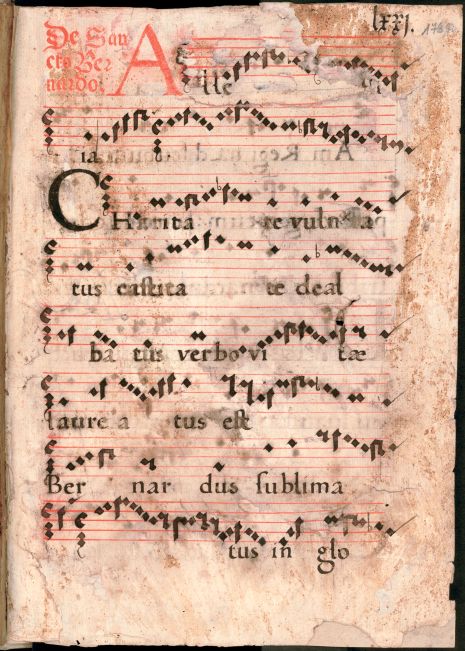 lxxj.
De San
cto Ber
nardo.
Alle
ia
CHarita te vulne ra
tus castita te deal
ba tus verbo vi tæ
laure a tus est
Ber nar dus sublima
tus in glo